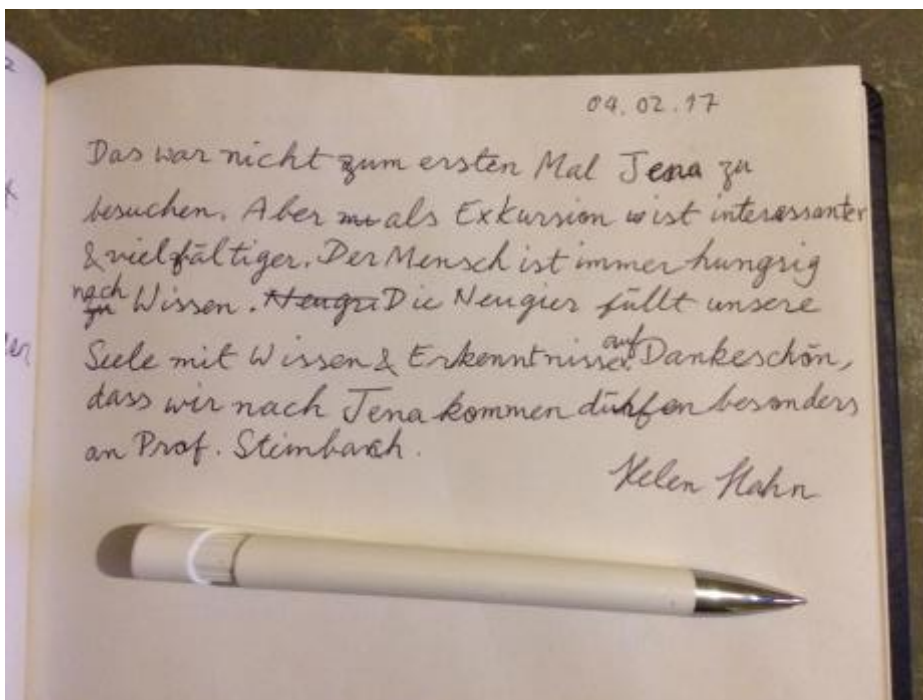 09.02.17
Das war nicht zum ersten Mal Jena zu
besuchen. Aber als Exkursion ist interessanter
& vielfältiger. Der Mensch ist immer hungrig
nach Wissen. Die Neugier füllt unsere
Seele mit Wissen & Erkenntnissen auf. Dankeschön,
dass wir nach Jena kommen dürfen besonders
an Prof. Steinbach.
Helen Hahn